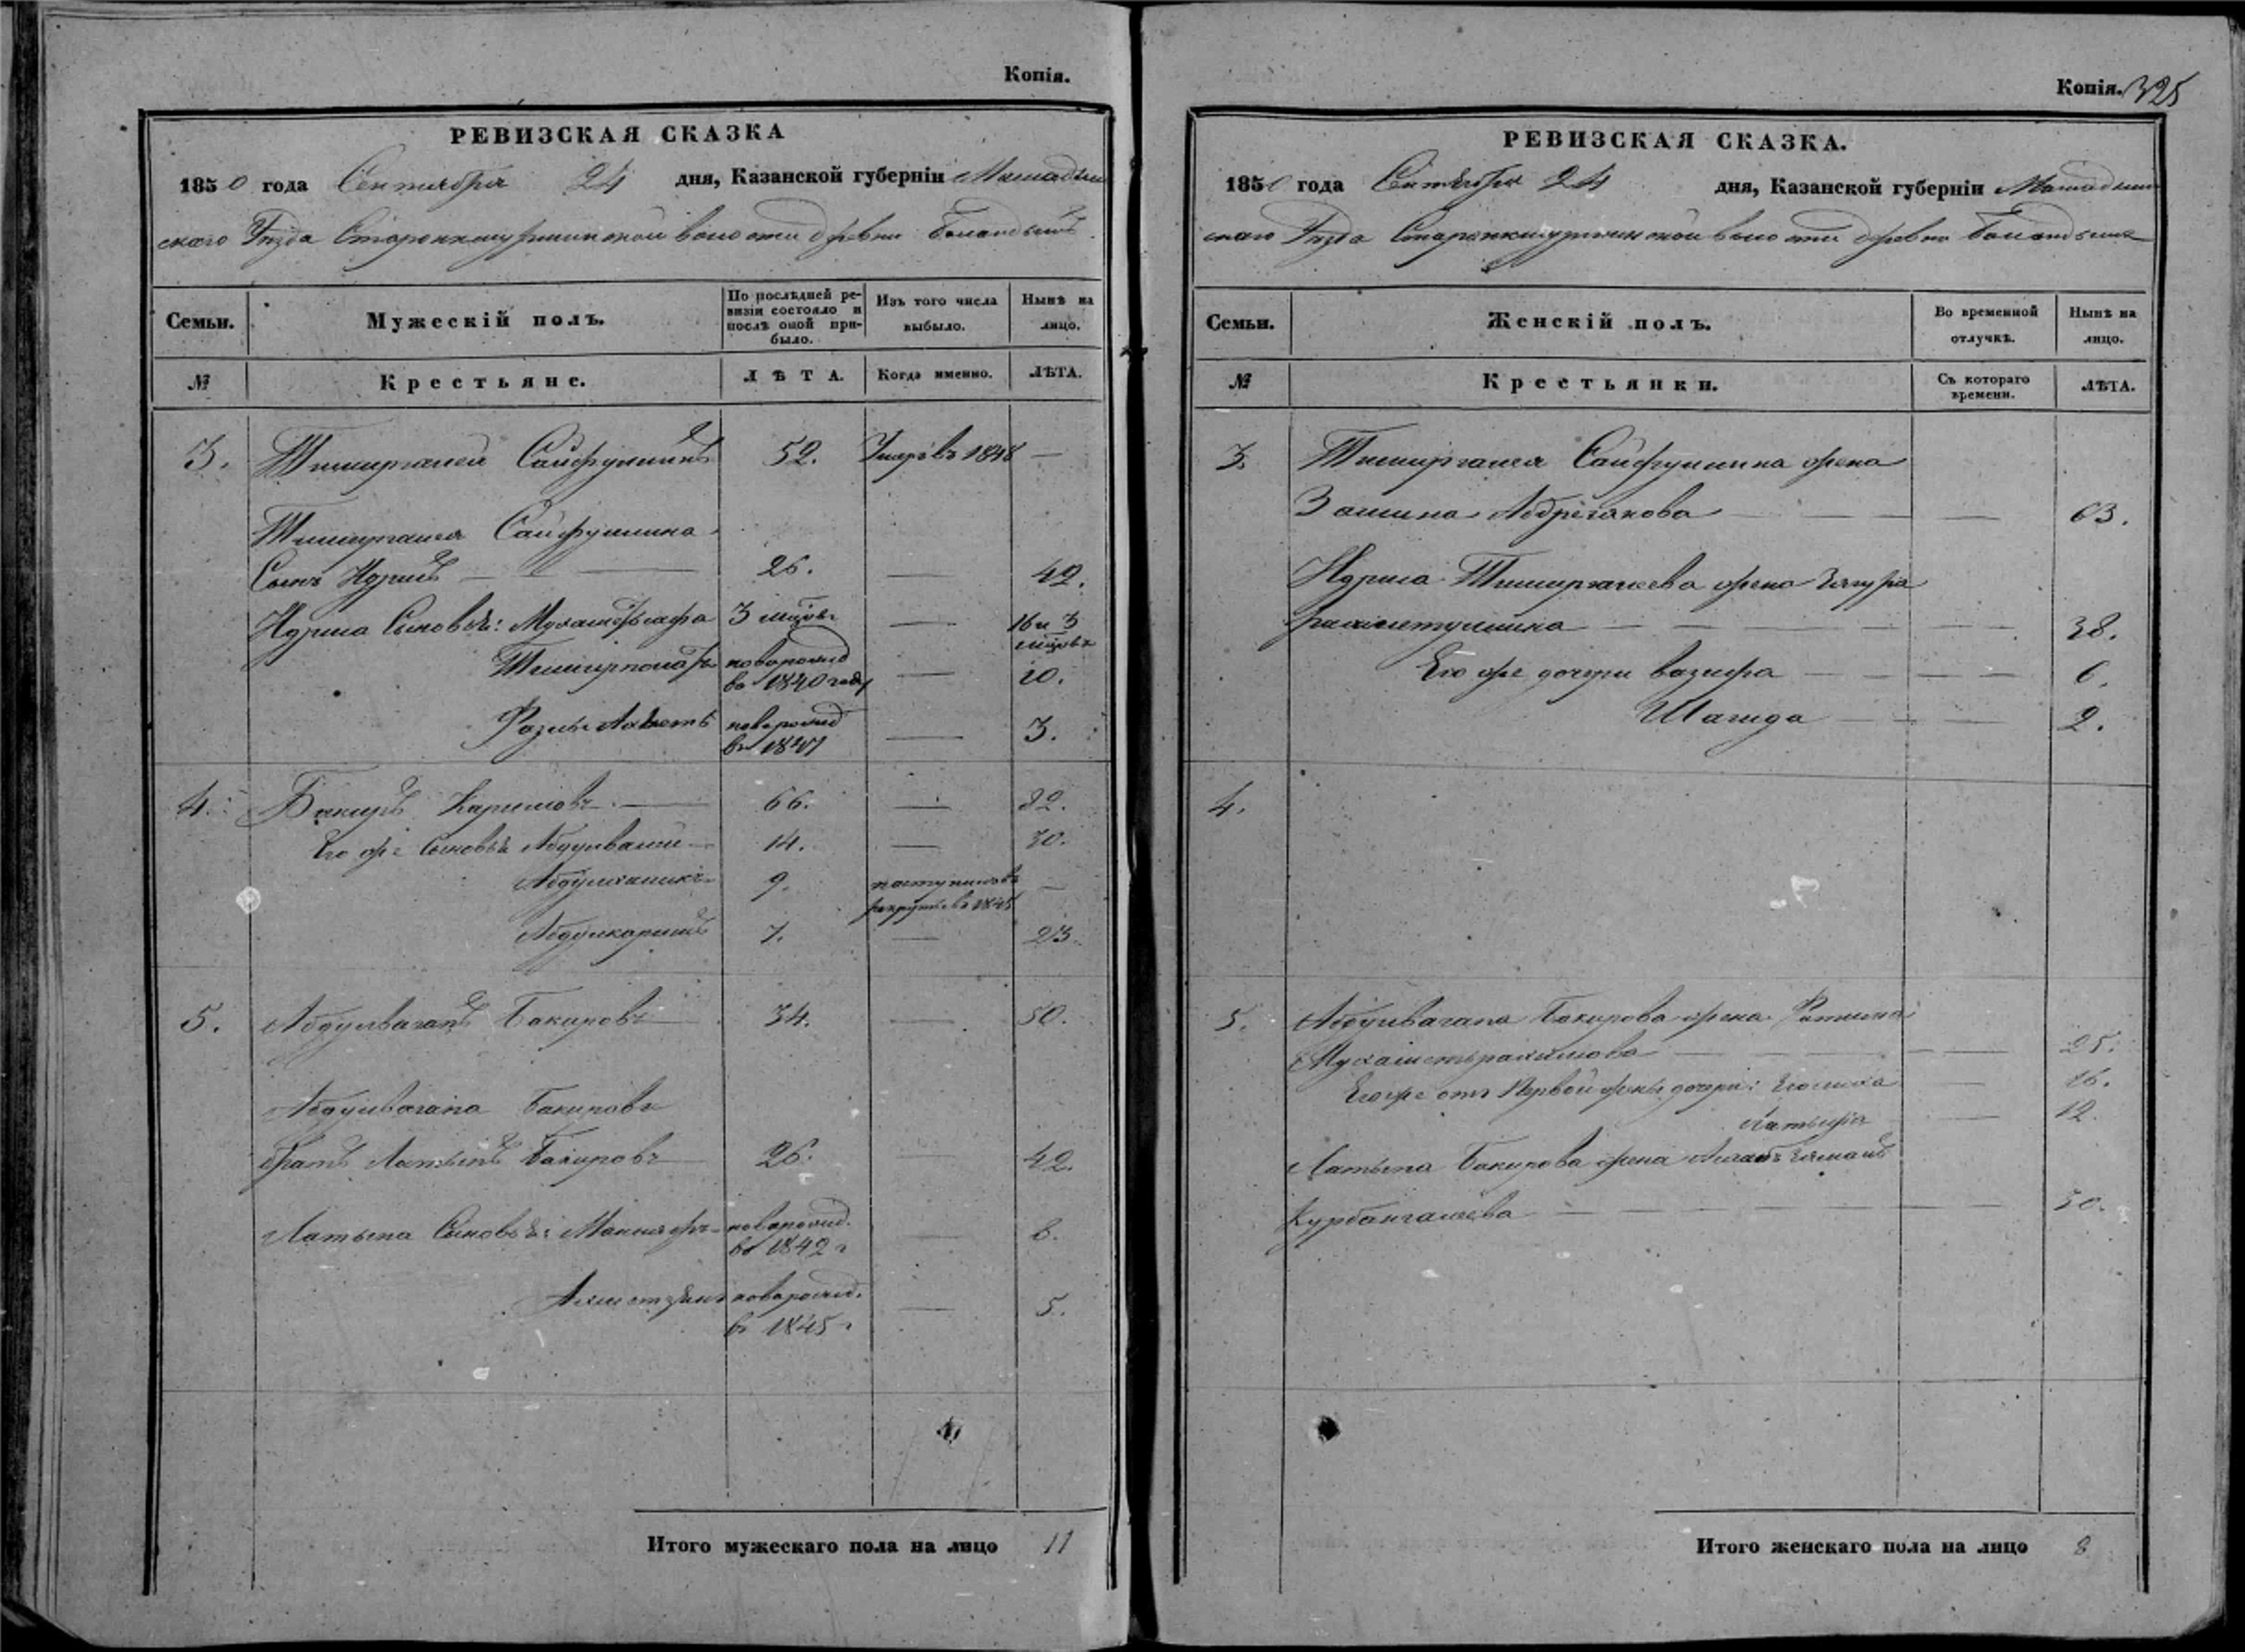 Копія.
РЕВИЗСКАЯ СКАЗКА
1850 года Сентября 24 дня, Казанской губерніи Мамадыш
скаго Уѣзда Старокишурминской волости деревни
Семьи. Мужескій полъ. По послѣдней ре-визіи состояло и послѣ оной при-было. Изъ того числа выбыло. Нынѣ на лицо.
№ Крестьяне. ЛѢТА. Когда именно. ЛѢТА.
3. Тимиргалей Сайфуллинъ 52. Умеръ въ 1848 —
Тимиргалея Сайфуллина
Сынъ Идрисъ — 26. — 42.
Идриса Сыновья: 3 мѣсяцъ — 16 и 3 мѣсяцъ
новорожд въ 1840 году — 10.
новорожд въ 1847 — 3.
4. Бакиръ Каримовъ — 66. — 82.
Его же Сыновья Абдулвали — 14. — 30.
Абдулхаликъ 9. поступилъ въ рекруты въ 1845 —
Абдулкаримъ 7. — 23.
5. Абдулвагапъ Бакировъ 34. — 50.
Абдулвагапа Бакирова
братъ Латыпъ Бакировъ 26. — 42.
Латыпа Сыновья: новорожд. въ 1842 г — 8.
Ахметзянъ новорожд. въ 1845 г — 5.
Итого мужескаго пола на лицо 11
Копія. 325
РЕВИЗСКАЯ СКАЗКА.
1850 года Сентября 24 дня, Казанской губерніи Мамадыш
скаго Уѣзда Старокишурминской волости деревни
Семьи. Женскій полъ. Во временной отлучкѣ. Нынѣ на лицо.
№ Крестьянки. Съ котораго времени. ЛѢТА.
3. Тимиргалея Сайфуллина жена
— — 63.
Идриса Тимиргалеева жена
— — 38.
Его же дочери Вазифа — — 6.
Шагида — — 2.
4.
5. Абдулвагапа Бакирова жена Фатима
Мухаметьрахимова — — 25.
Его же отъ Первой жены дочери: — 16.
Латифа — 12.
Латыпа Бакирова жена
Курбангалеева — — 30.
Итого женскаго пола на лицо 8